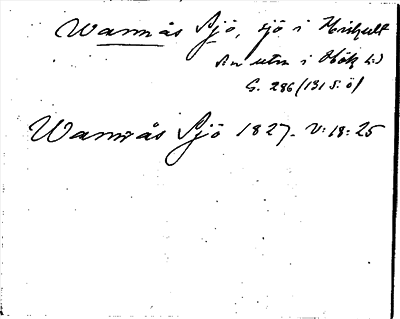 Wannås Sjö, sjö i Hishult
s:n utm i Hök h:d
G. 286 (131 S: ö)
Wannås Sjö 1827. V: 18: 25